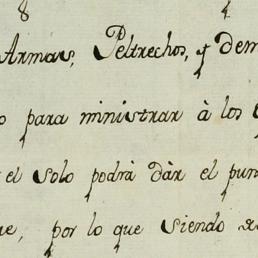 8 4
Armas, Peltrechos, y dem
o para ministrar à los
el solo podrà dàr el pun
ue, por lo que siendo